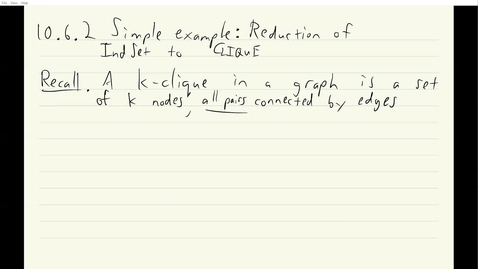 10.6.2 Simple example: Reduction of
IndSet to CLIQUE
Recall. A k-clique in a graph is a set
of k nodes, all pairs connected by edges